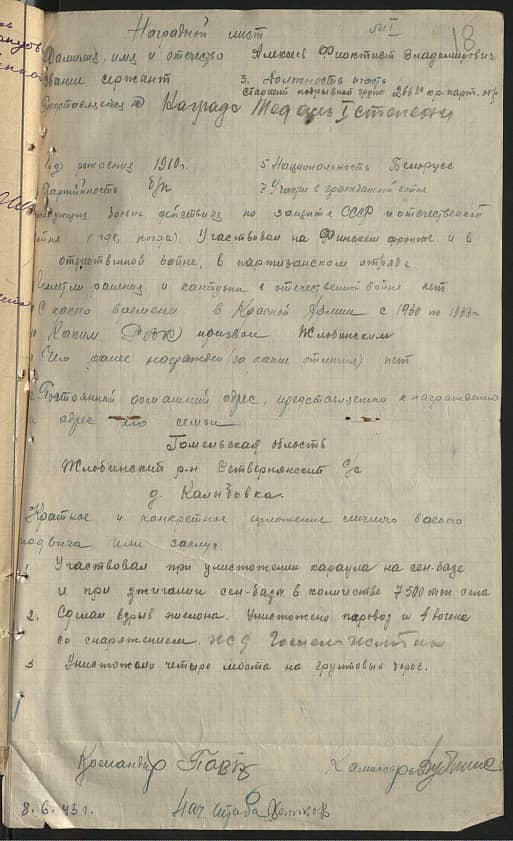 Наградной лист
№ I
18
Фамилия, имя и отечество Алексеев Фиоктист Владимирович
Звание сержант 3. Должность, часть
старший подрывной групп 266го кр. парт. отр.
Представляется к Награде Медаль I степени
Год рождения 1910 г. 5 Национальность Белорусс
Партийность б/п 7 Участие в гражданской войне
боевых действиях по защите СССР и отечественной
войне (где, когда) Участвовал на Финском фронте и в
отечественной войне, в партизанском отряде
Имеет ли ранения и контузии в отечественной войне нет
С какого времени в Красной Армии с 1930 по 1933 г.
Каким РВК призван Жлобинским
Чем ранее награжден (за какие отличия) нет
Постоянный домашний адрес, представляемого к награждению
и адрес его семьи
Гомельская область
Жлобинский р-н с/с
д.
Краткое и конкретное изложение личного боевого
подвига или заслуг
1 Участвовал при уничтожении караула на сен-базе
и при джигании сен-базы в количестве 7500 тон сена
2. Сделал взрыв эшелона. Уничтожено паровоз и 4 вагона
со снаряжением. жд Гомель
3 Уничтожено четыре моста на грунтовых дорог.
Командир
Комиссар
8. 6. 43 г. Нач. штаба